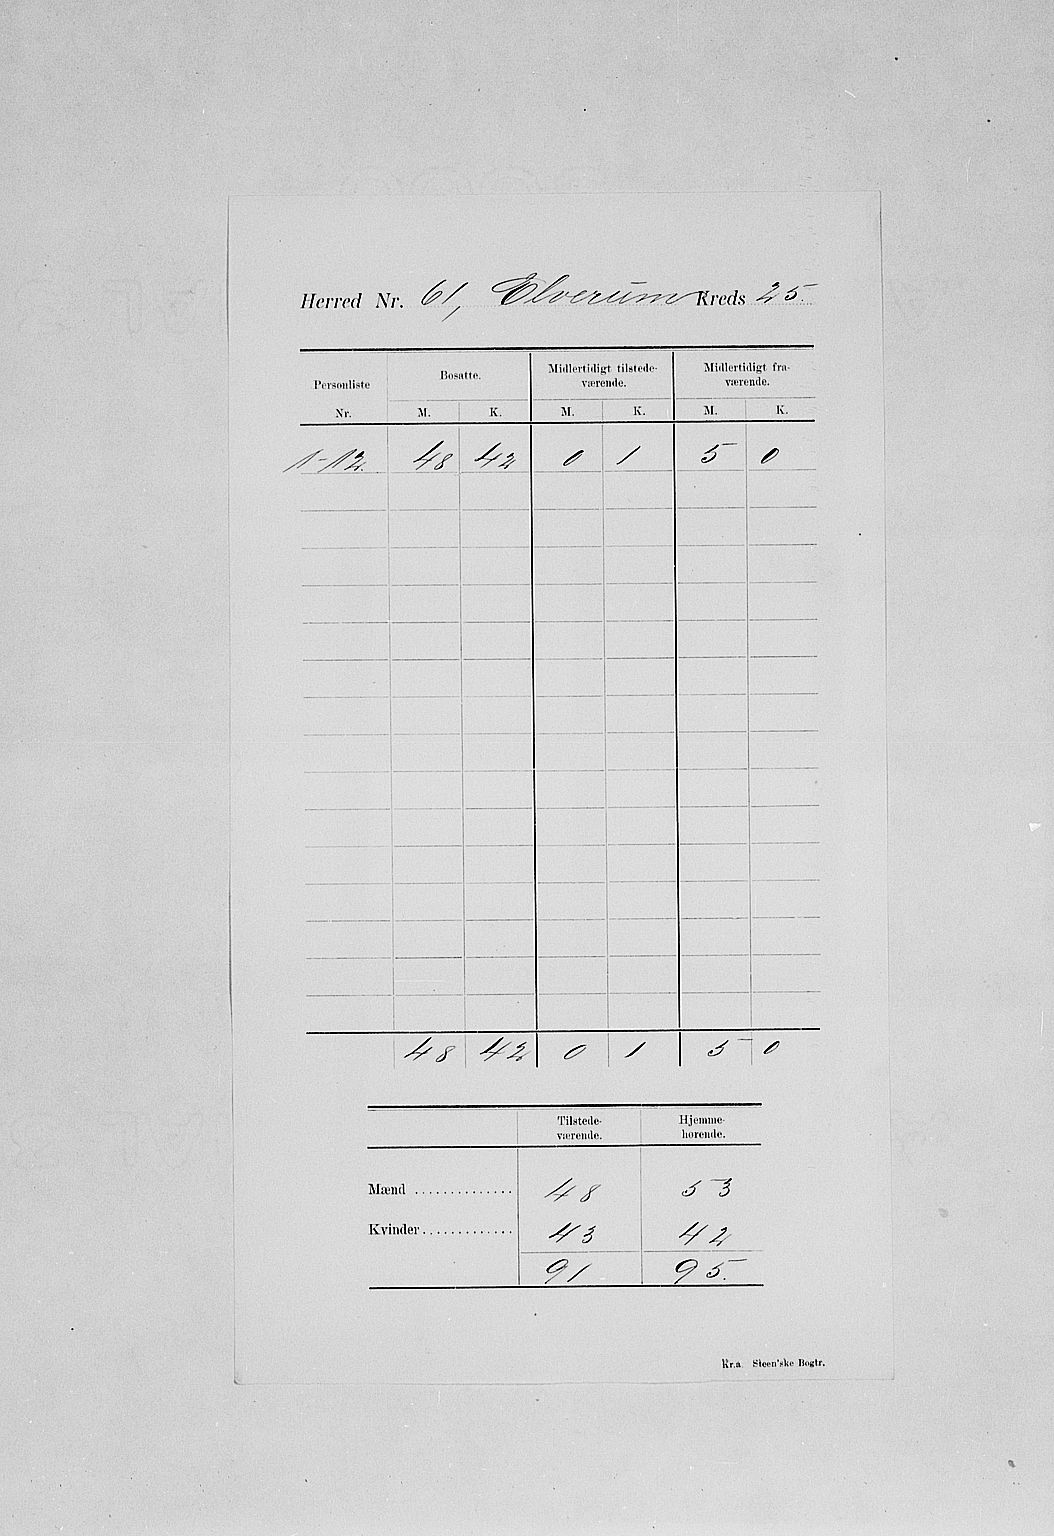 Herred Nr. 61, Elverum Kreds 25.
Personliste Nr. Bosatte. Midlertidigt tilstede-værende. Midlertidigt fra-værende.
M. K. M. K. M. K.
1-12. 48 42 0 1 5 0
48 42 0 1 5 0
Tilstede-værende. Hjemme-hørende.
Mænd .............. 48 53
Kvinder............. 43 42
91 95.
Kr.a. Steen'ske Bogtr.